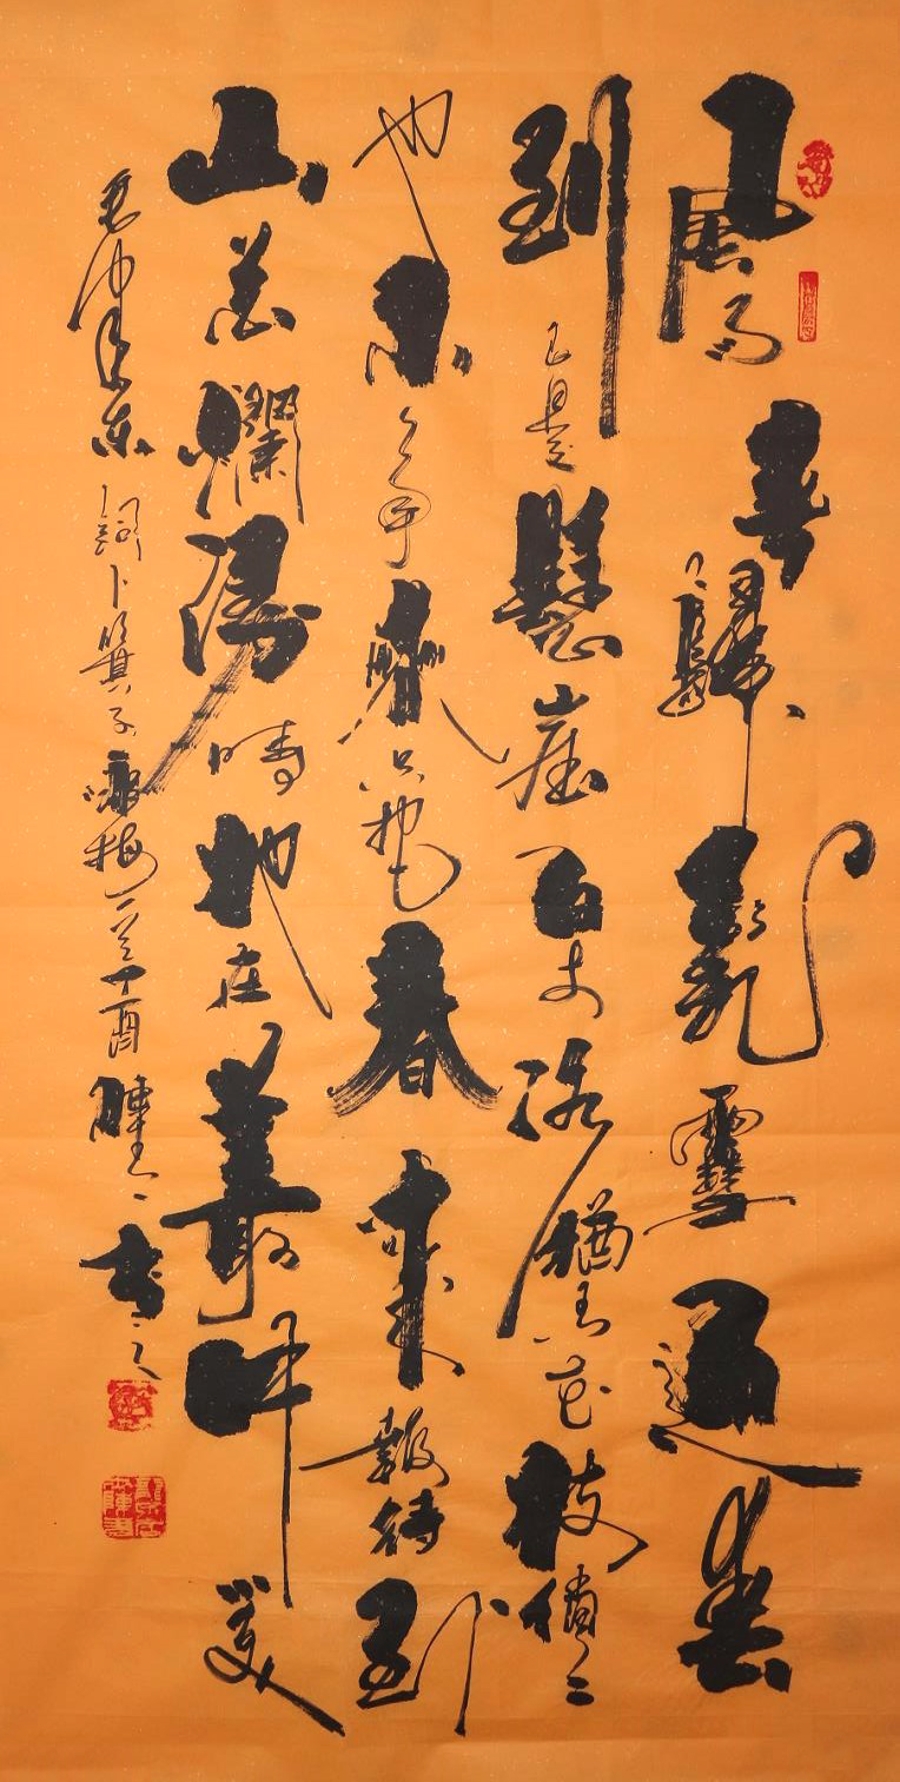 風雨送春歸飛雪迎春
到已是懸崖百丈冰猶有花枝俏
也不爭春只把春來報待到
山花爛漫時她在叢中笑
毛澤東詞卜算子詠梅一首丁酉書之